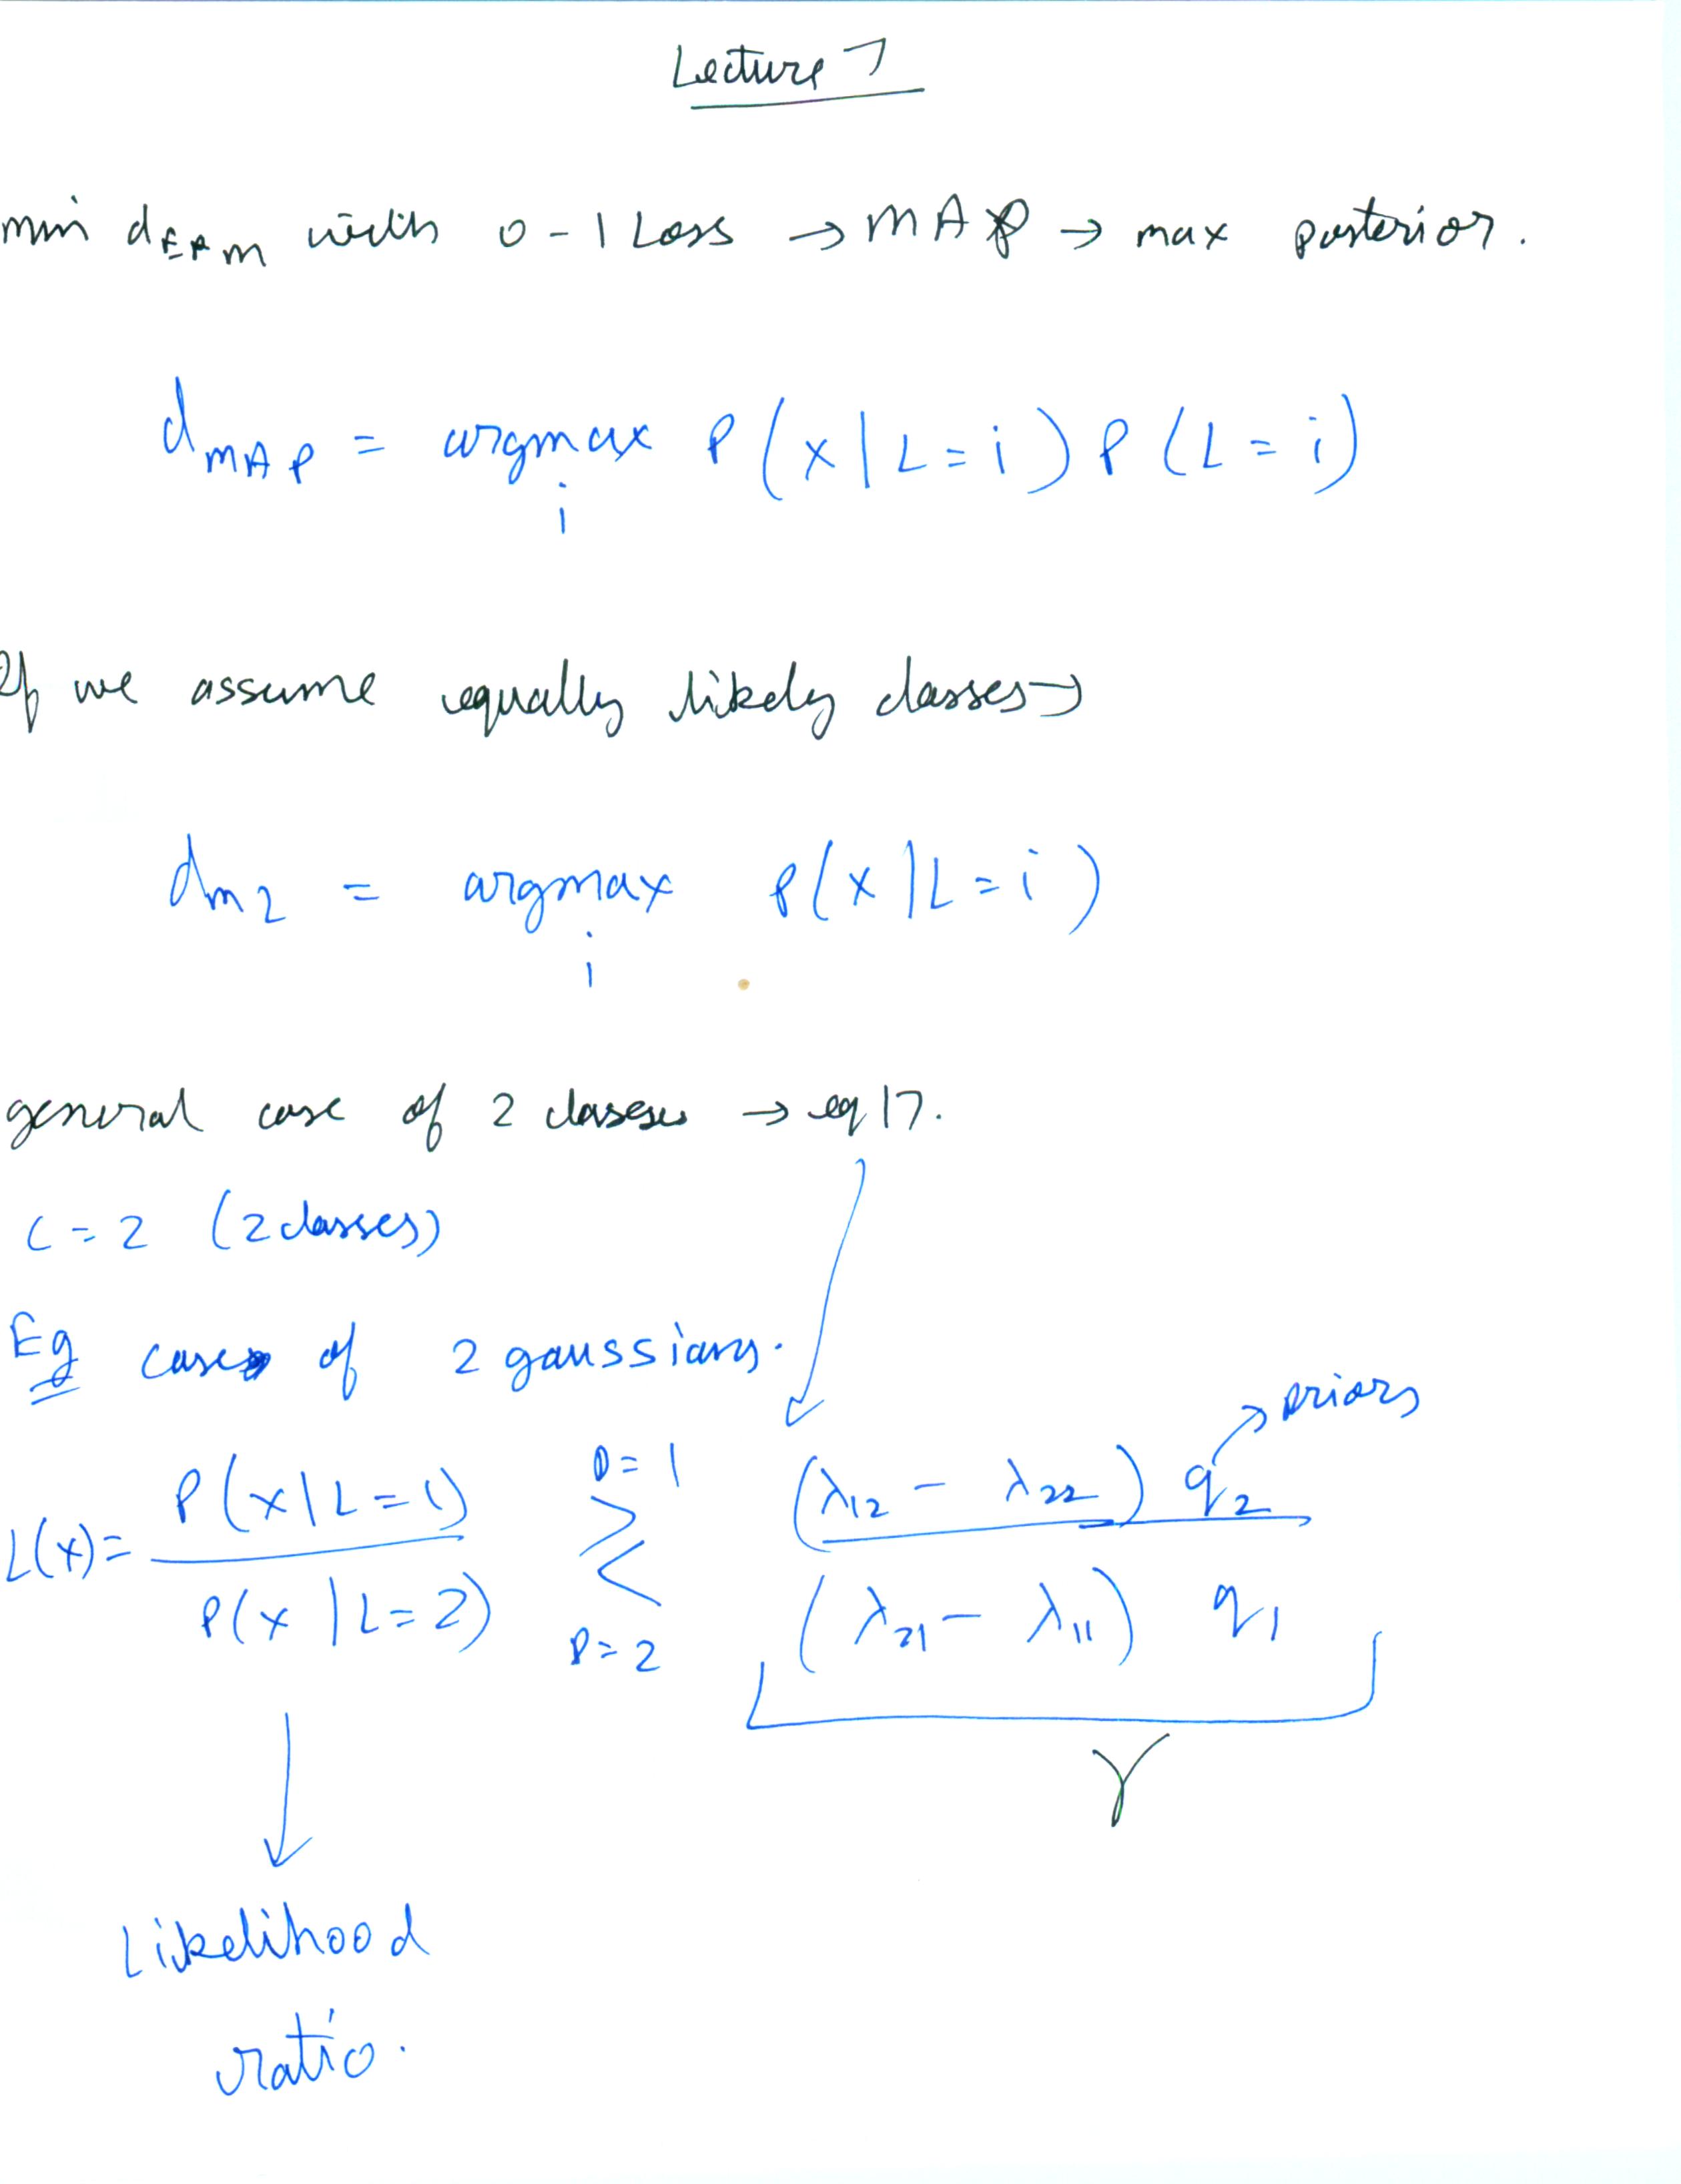 Lecture 7
min dERM with 0-1 Loss → MAP → max posterior.
dMAP = argmax P(x|L=i) P(L=i)
i
If we assume equally likely classes →
dM2 = argmax P(x|L=i)
i
general case of 2 classes → eq 17.
C = 2 (2 classes)
Eg case of 2 gaussians.
priors
L(x) = P(x|L=1) / P(x|L=2) D=1 > < D=2 (λ12 - λ22) q2 / (λ21 - λ11) q1
γ
Likelihood
ratio.